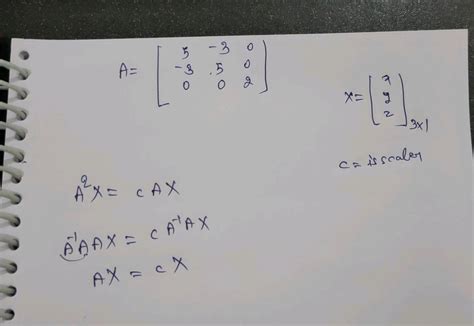 A = [ 5 -3 0
-3 .5 0
0 0 2 ]
X = [ x
y
z ] 3x1
c = is scaler
A²X = c AX
A⁻¹A AX = c A⁻¹AX
AX = c X